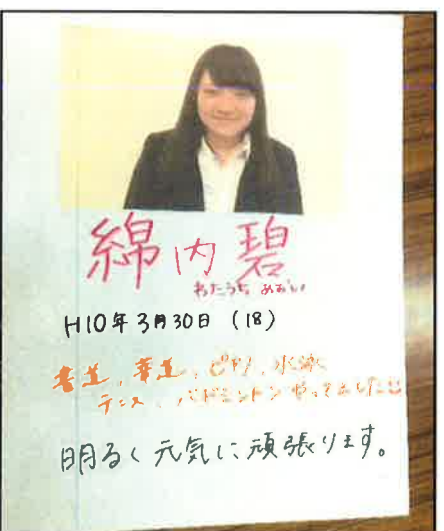 綿内 碧
わたうち あおい
H10年3月30日 (18)
書道、華道、ピアノ、水泳
テニス、バドミントン やってました
明るく元気に頑張ります。